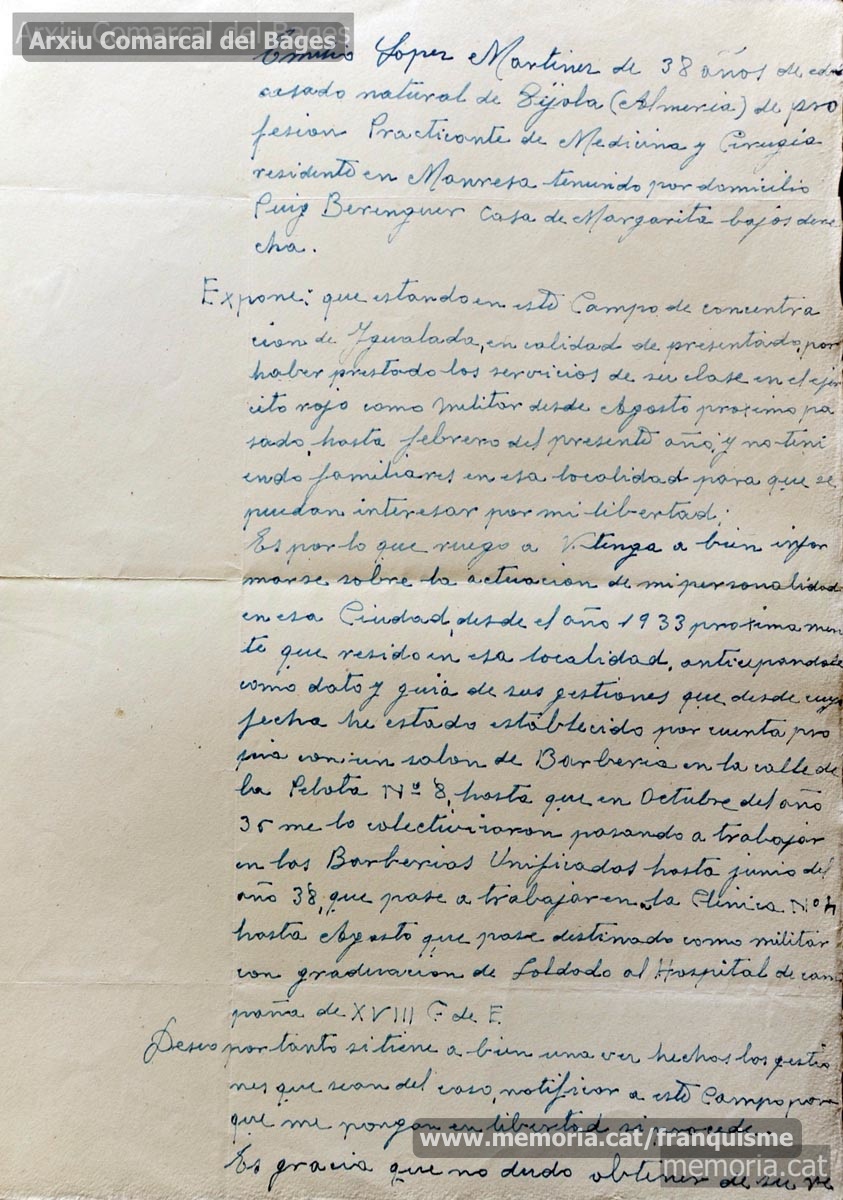 Arxiu Comarcal del Bages
Arxiu Comarcal del Bages
Emilio Lopez Martinez de 38 años de eda
casado natural de Tijola (Almeria) de pro
fesion Practicante de Medicina y Cirugía
residente en Manresa teniendo por domicilio
Puig Berenguer Casa de Margarita bajos dere
cha.
Expone: que estando en este Campo de concentra
cion de Igualada, en calidad de presentado, por
haber prestado los servicios de su clase en el ejer
cito rojo como militar desde Agosto proximo pa
sado, hasta febrero del presente año, y no teni
endo familiares en esa localidad para que se
puedan interesar por mi libertad;
Es por lo que ruego a V. tenga a bien infor
marse sobre la actuacion de mi personalidad
en esa Ciudad, desde el año 1933 proximamen
te que resido en esa localidad, anticipandole
como dato y guia de sus gestiones que desde cuya
fecha he estado establecido por cuenta pro
pia con un salon de Barberia en la calle de
la Pelota Nº 8, hasta que en Octubre del año
36 me la colectivizaron pasando a trabajar
en las Barberias Unificadas hasta junio del
año 38, que pase a trabajar en la Clinica Nº 4
hasta Agosto que pase destinado como militar
con graduacion de Soldado al Hospital de cam
paña de XVIII C. de E.
Deseo por tanto si tiene a bien una vez hechas las gestio
nes que sean del caso, notificar a este Campo para
que me pongan en libertad si procede.
Es gracia que no dudo obtener de su re
www.memoria.cat/franquisme
memoria.cat